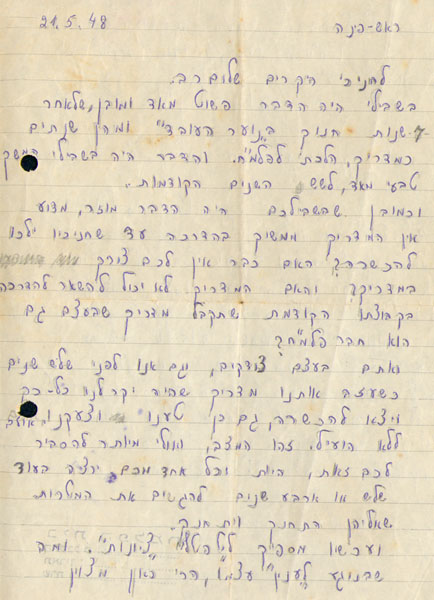 ראש-פינה 21.5.48
לחניכי היקרים שלום רב.
בשבילי היה הדבר פשוט מאד ומובן, שלאחר
7- שנות חנוך ב"נוער העובד" ומהן שנתים
כמדריך, הלכתי לפלמ"ח. והדבר היה בשבילי המשך
טבעי מאד, לשש השנים הקודמות.
וכמובן שבשבילכם היה הדבר מוזר, מדוע
אין המדריך ממשיך בהדרכה עד שחניכיו ילכו
להכשרה? האם כבר אין לכם צורך
במדריך? והאם המדריך לא יכול להשאר להדרכה
בקבוצתו הקודמת שתקבל מדריך שבעצם גם
הוא חבר פלמ"ח?
ואתם בעצם צודקים, וגם אנו לפני שלש שנים
כשעזב אותנו מדריך שהיה יקר לנו כל-כך
ויצא להכשרה, גם כן טענו וצעקנו,
ללא הועיל. זהו המצב, ואולי מיותר להסביר
לכם זאת, היות וכל אחד מכם ירצה בעוד
שלש או ארבע שנים להגשים את המטרות
שאליהן התחנך וית חנך.
ועכשו מספיק "ציונות". ומה
שבנוגע לענין עצמו, הרי כאן מצוין